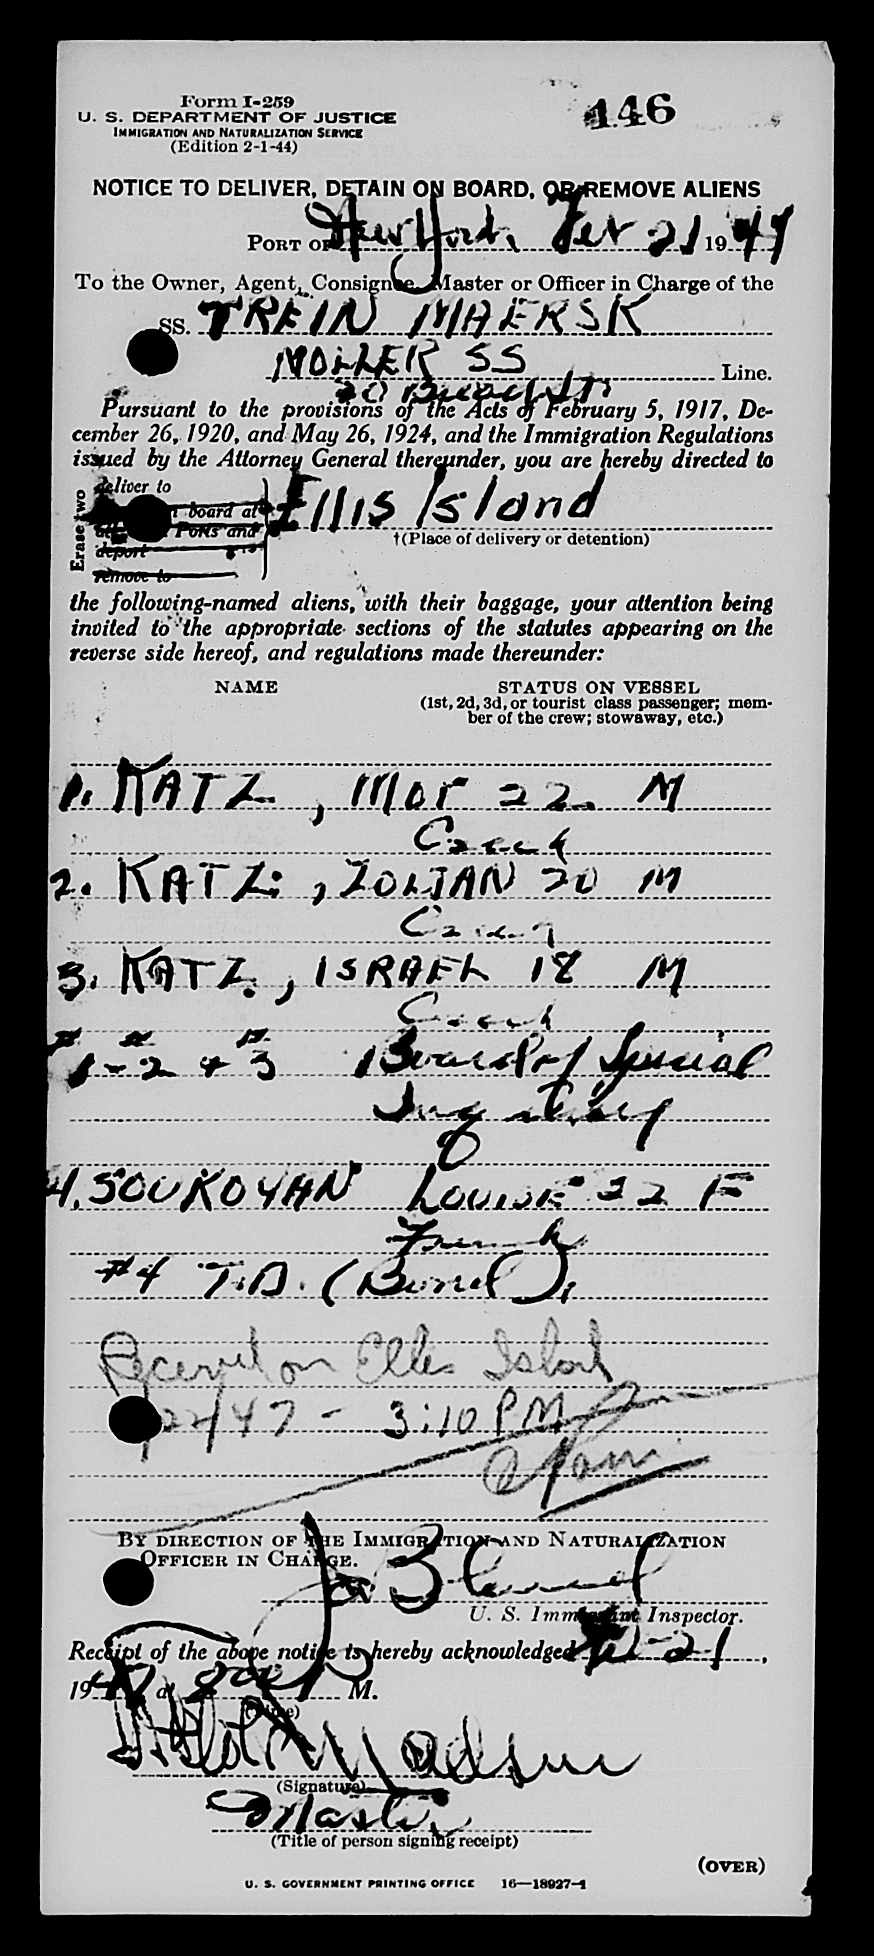 Form I-259
U. S. DEPARTMENT OF JUSTICE
IMMIGRATION AND NATURALIZATION SERVICE
(Edition 2-1-44)
446
NOTICE TO DELIVER, DETAIN ON BOARD, OR REMOVE ALIENS
PORT OF New York, Feb 21 1947
To the Owner, Agent, Consignee, Master or Officer in Charge of the
SS. TREIN MAERSK
MOLLER SS Line.
Pursuant to the provisions of the Acts of February 5, 1917, De-
cember 26, 1920, and May 26, 1924, and the Immigration Regulations
issued by the Attorney General thereunder, you are hereby directed to
Erase two
deliver to
board at
Ports and
deport
remove to
Ellis Island
†(Place of delivery or detention)
the following-named aliens, with their baggage, your attention being
invited to the appropriate sections of the statutes appearing on the
reverse side hereof, and regulations made thereunder:
NAME STATUS ON VESSEL
(1st, 2d, 3d, or tourist class passenger; mem-
ber of the crew; stowaway, etc.)
1. KATZ, Mor 22 M
Czech
2. KATZ, ZOLTAN 20 M
Czech
3. KATZ, ISRAEL 18 M
Czech
#1 - #2 + #3 Board of Special
Inquiry
4. SOUKOYAN LOUISE 22 F
French
#4 T.D. (Bond)
Received on Ellis Island
2/22/47 - 3:10 PM
BY DIRECTION OF THE IMMIGRATION AND NATURALIZATION
OFFICER IN CHARGE.
U. S. Immigrant Inspector.
Receipt of the above notice is hereby acknowledged Feb-21,
1947 at M.
(Time)
Madsen
(Signature)
Master
(Title of person signing receipt)
(OVER)
U. S. GOVERNMENT PRINTING OFFICE 16—18927-1